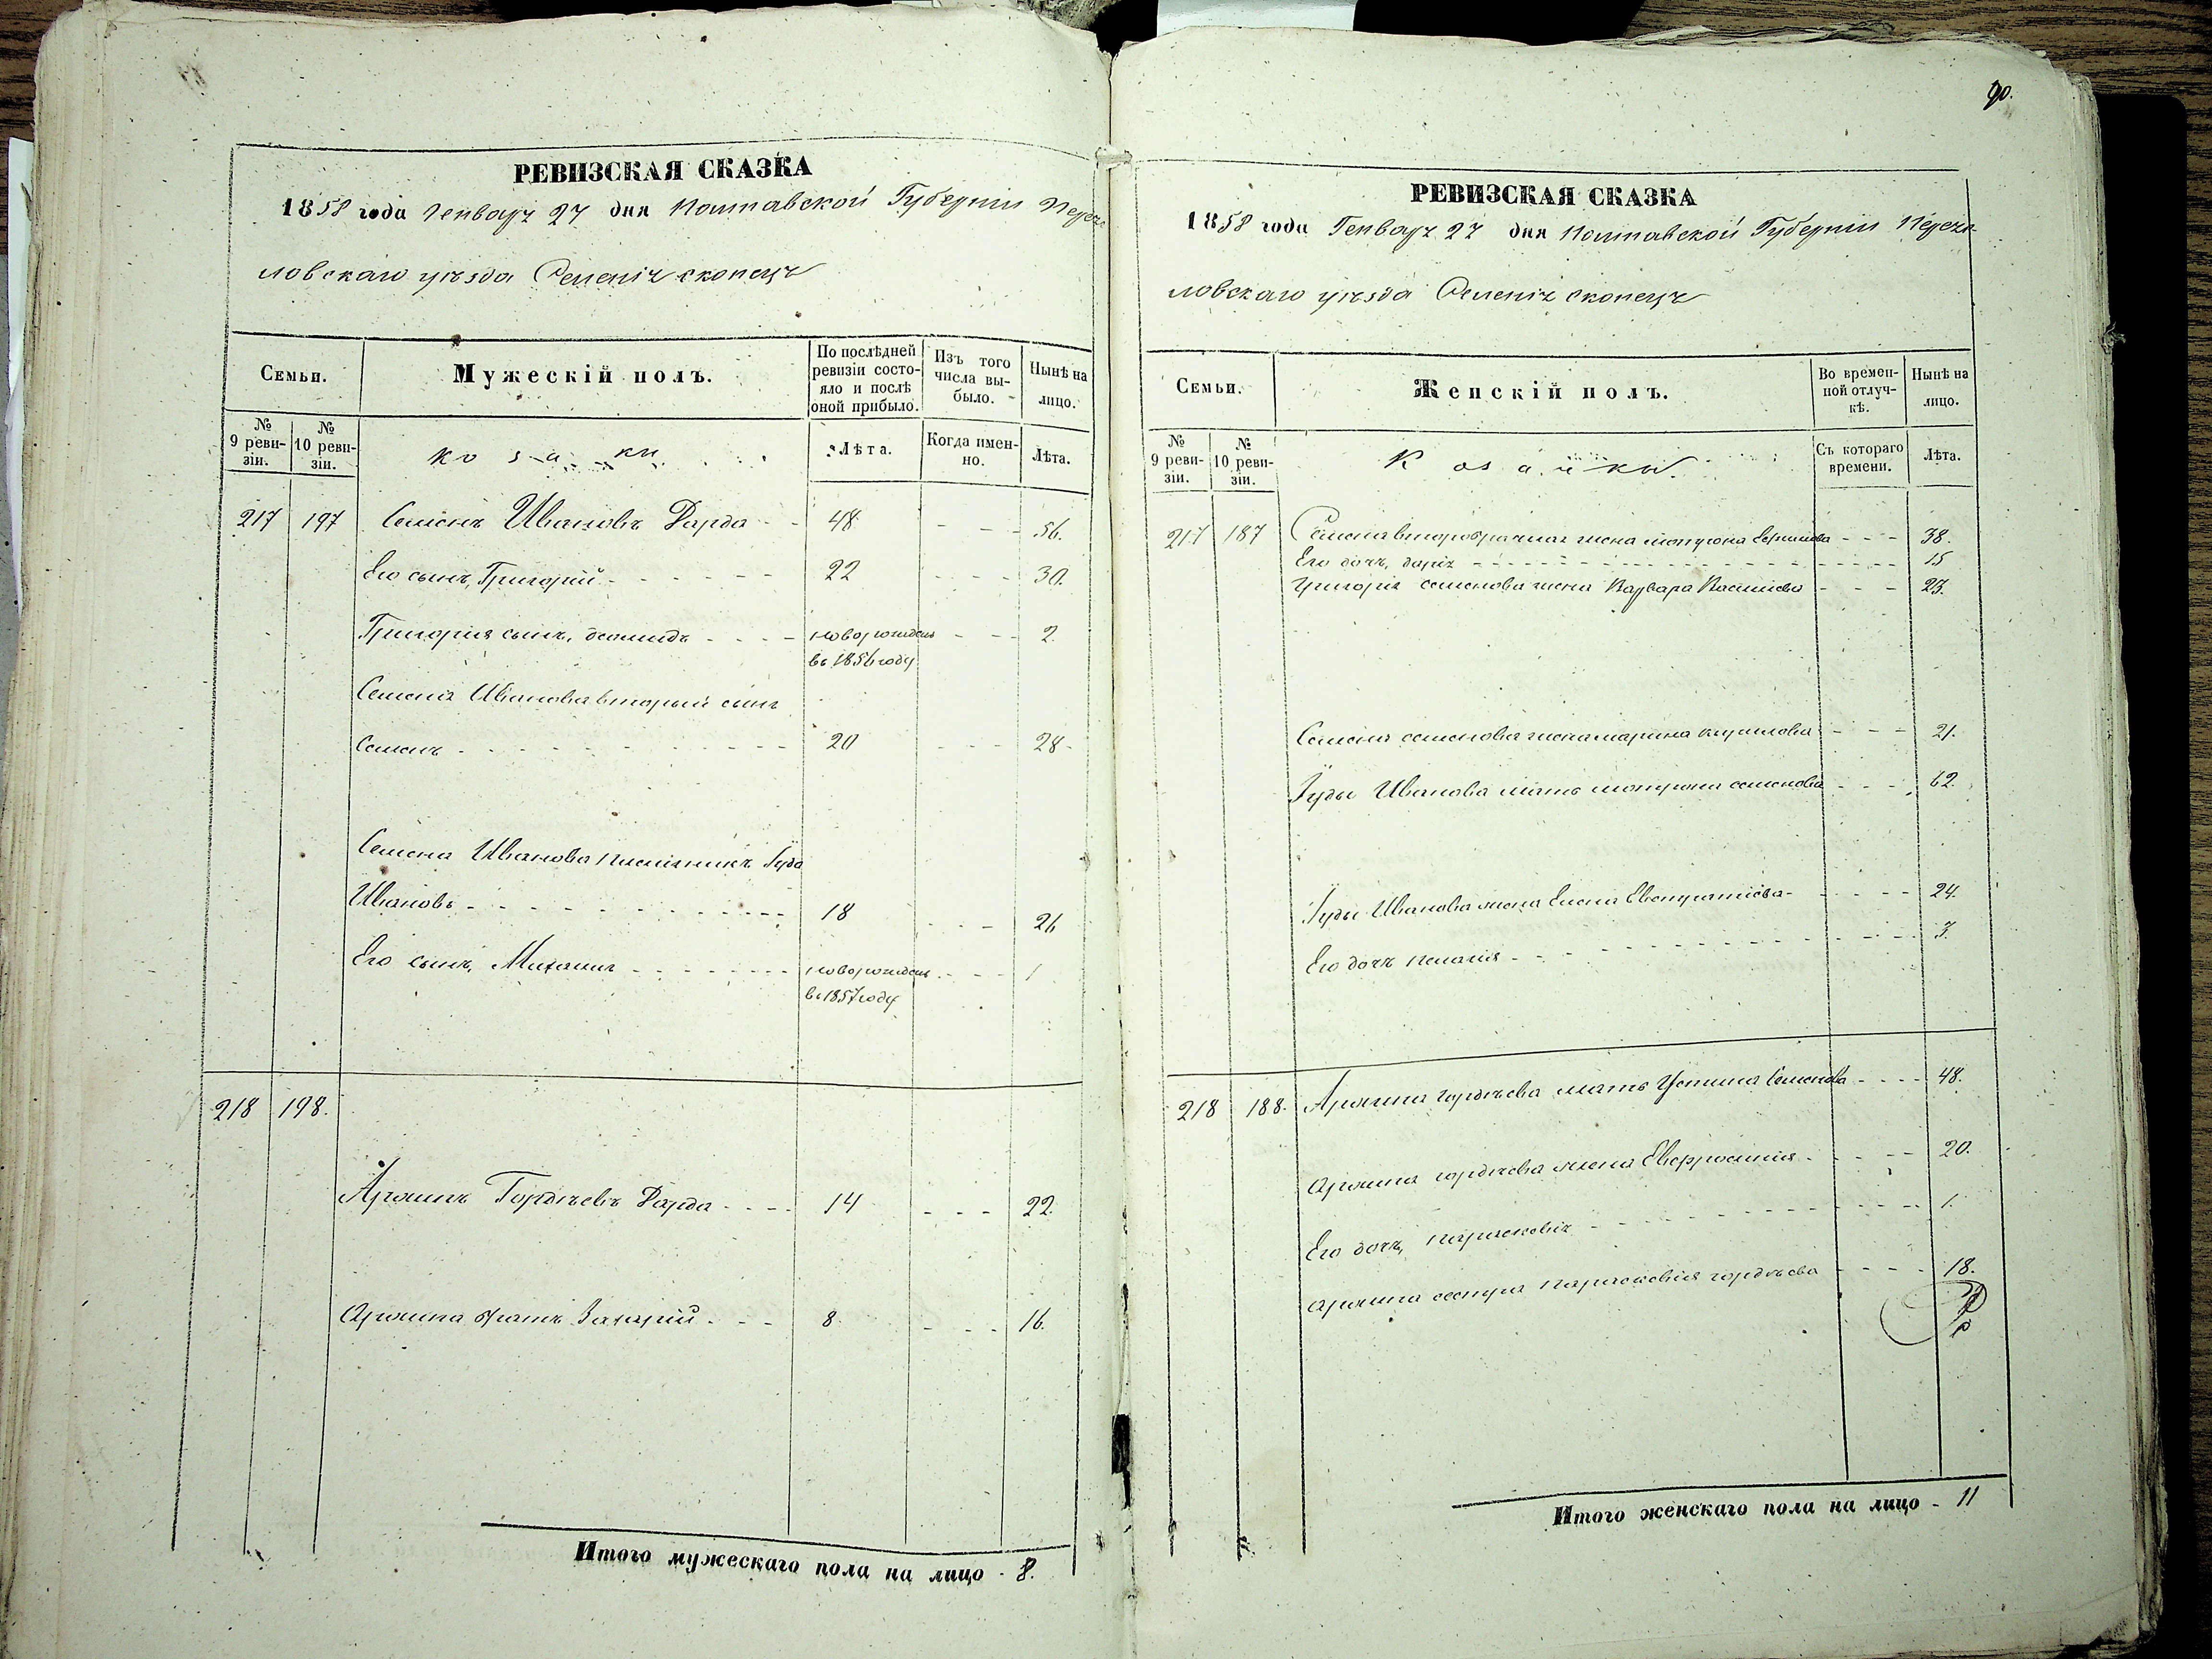 90.
РЕВИЗСКАЯ СКАЗКА
1858 года Генваря 27 дня Полтавской Губерніи Перея
словскаго уѣзда Селенія скопець
Семьи.
Мужескій полъ.
По послѣдней ревизіи состояло и послѣ оной прибыло.
Изъ того числа выбыло.
Нынѣ на лицо.
№ 9 ревизіи.
№ 10 ревизіи.
козаки
Лѣта.
Когда именно.
Лѣта.
217 197 Семенъ Ивановъ Дарда - - 48 - - - 56.
Его сынъ, Григорій - - - - - - 22 - - - - 30.
Григорія сынъ, - - - - новорожденъ - - - 2.
въ 1856 году
Семена Иванова вторый сынъ
Семенъ - - - - - - - - - - - - 20 - - - 28 -
Семена Иванова племѣнникъ Іуда
Ивановъ - - - - - - - - - - - - 18 - - - 26
Его сынъ, Михаилъ - - - - - - - новорожденъ - - - - 1
въ 1857 году
218 198.
Гордѣевъ Дарда - - - - 14 - - - 22.
братъ Захарій - - - - 8. - - - 16.
Итого мужескаго пола на лицо - 8.
РЕВИЗСКАЯ СКАЗКА
1858 года Генваря 27 дня Полтавской Губерніи Перея
словскаго уѣзда Селенія скопець
Семьи.
Женскій полъ.
Во временной отлучкѣ.
Нынѣ на лицо.
№ 9 ревизіи.
№ 10 ревизіи.
Козачки.
Съ котораго времени.
Лѣта.
217 187 Семена второбрачная жена мотрона - - - 38.
Его дочь, дарія - - - - - - - - - - - - 15
Григорія семенова жена Варвара Василева - - - 23.
Семена семенова жена марина кирилова - - - 21.
Іуды Иванова мать мотрона семенова - - - - 62.
Іуды Иванова жена Елена Евстратіева - - - - - 24.
Его дочь пелагія - - - - - - - - - - - - 3.
218 188. гордѣева мать Устина Семенова - - - - 48.
гордѣева жена Евфросинія - - - - - 20.
Его дочь, парасковія - - - - - - - - - - - - 1.
сестра параскевія гордѣева - - - - 18.
Итого женскаго пола на лицо - 11